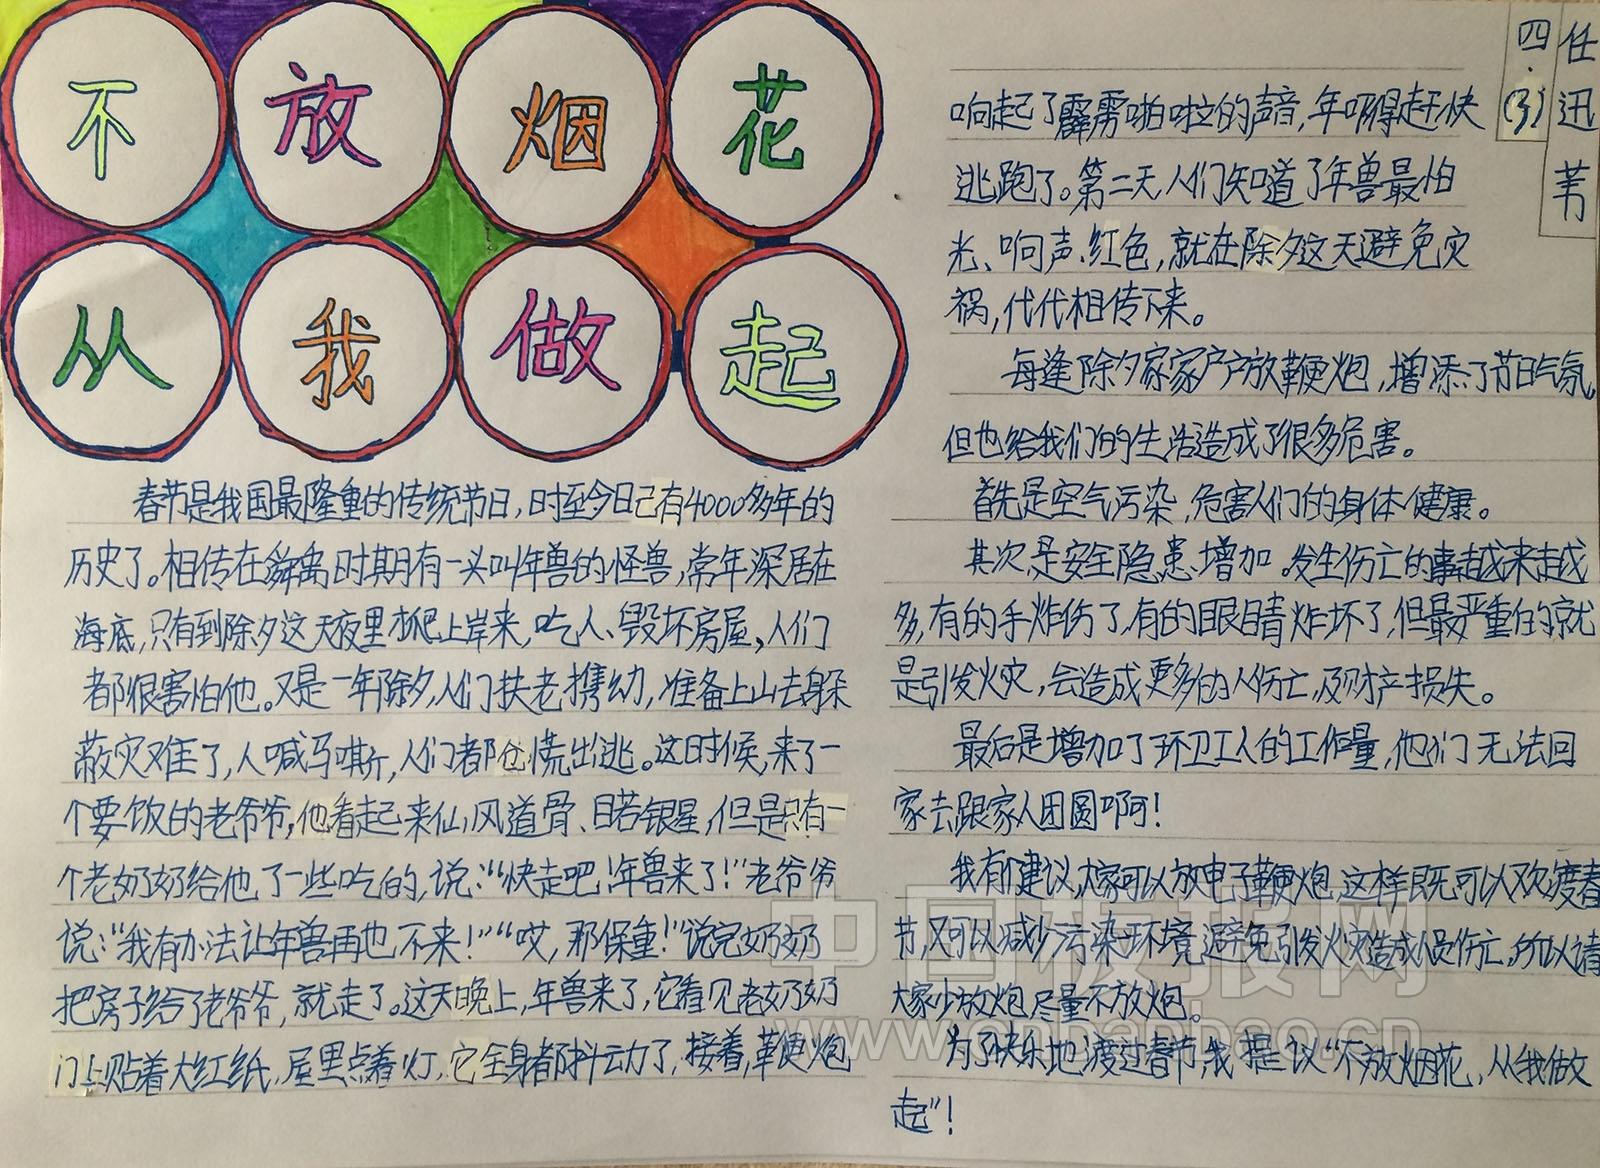 不放烟花
从我做起
四·(3)
任迅苇
春节是我国最隆重的传统节日，时至今日已有4000多年的
历史了。相传在舜禹时期有一头叫年兽的怪兽，常年深居在
海底，只有到除夕这天夜里才爬上岸来，吃人、毁坏房屋，人们
都很害怕他。又是一年除夕，人们扶老携幼，准备上山去躲
蔽灾难了，人喊马嘶，人们都仓慌出逃。这时候，来了一
个要饭的老爷爷，他看起来仙风道骨、目若银星，但是只有一
个老奶奶给他了一些吃的，说：“快走吧！年兽来了！”老爷爷
说：“我有办法让年兽再也不来！”“哎，那保重！”说完奶奶
把房子给了老爷爷，就走了。这天晚上，年兽来了，它看见老奶奶
门上贴着大红纸，屋里点着灯，它全身都抖动了，接着，鞭炮
响起了霹雳啪啦的声音，年吓得赶快
逃跑了。第二天人们知道了年兽最怕
光、响声、红色，就在除夕这天避免灾
祸，代代相传下来。
每逢除夕家家户户放鞭炮，增添了节日气氛。
但也给我们的生活造成了很多危害。
首先是空气污染，危害人们的身体健康。
其次是安全隐患增加。发生伤亡的事越来越
多，有的手炸伤了，有的眼睛炸坏了，但最严重的就
是引发火灾，会造成更多的人伤亡，及财产损失。
最后是增加了环卫工人的工作量，他们无法回
家去跟家人团圆啊！
我有个建议，大家可以放电子鞭炮，这样既可以欢渡春
节，又可以减少污染环境，避免引发火灾造成人员伤亡，所以请
大家少放炮，尽量不放炮。
为了快乐地渡过春节，我提议“不放烟花，从我做
起”！
中国板报网
www.cnbanbao.cn